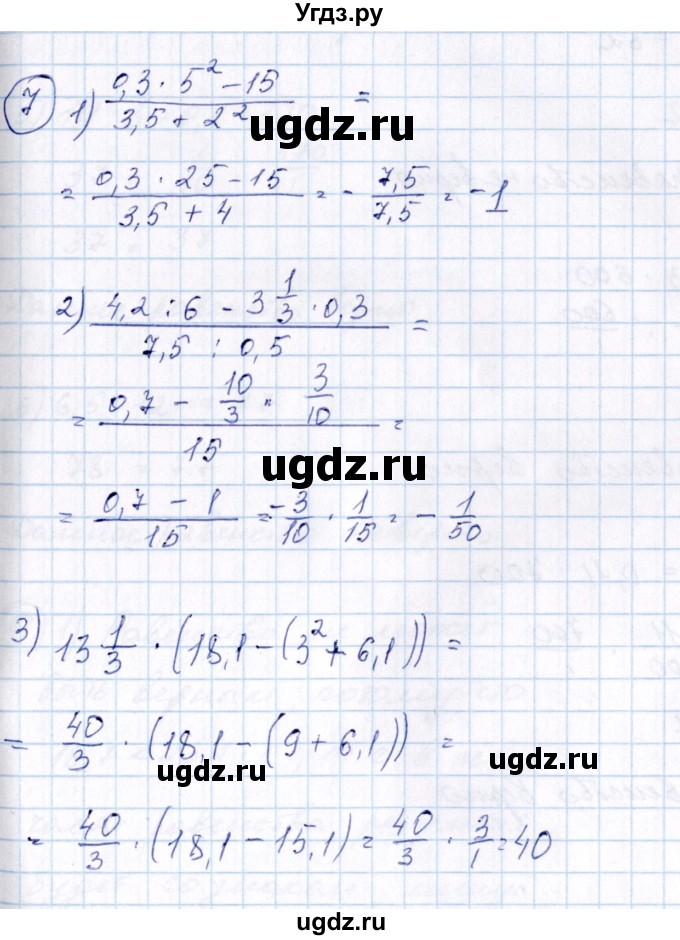 Угдз.ру
7 1) (0,3 · 5² − 15)/(3,5 + 2²) =
ugdz.ru
= (0,3 · 25 − 15)/(3,5 + 4) = − 7,5/7,5 = −1
2) (4,2 : 6 − 3 1/3 · 0,3)/(7,5 : 0,5) =
= (0,7 − 10/3 · 3/10)/15 =
ugdz.ru
= (0,7 − 1)/15 = −3/10 · 1/15 = − 1/50
3) 13 1/3 · (18,1 − (3² + 6,1)) =
= 40/3 · (18,1 − (9 + 6,1)) =
ugdz.ru
= 40/3 · (18,1 − 15,1) = 40/3 · 3/1 = 40
ugdz.ru